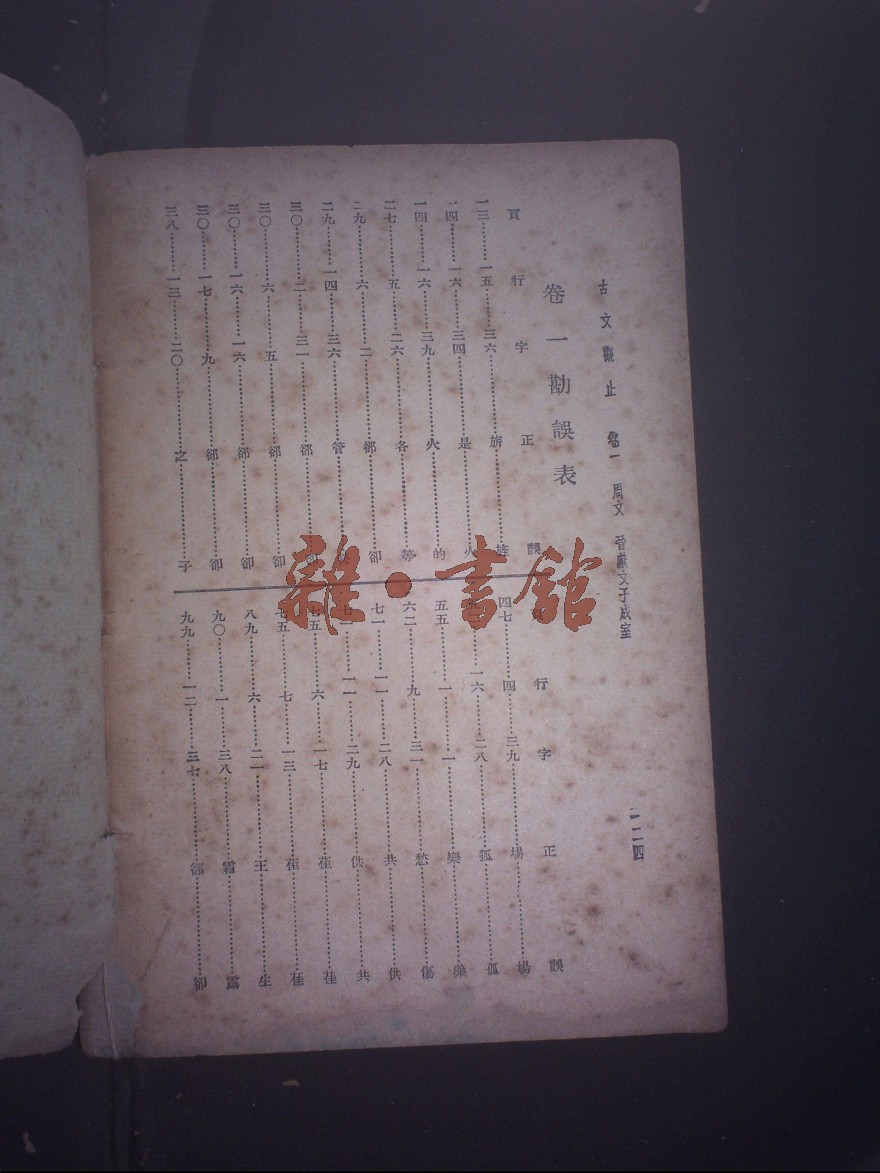 古文觀止 卷一 周文 晉獻文子成室
一二四
卷一勘誤表
頁 行 字 正 誤
一三 一五 三六 旃
一四 一六 三四 是 火
一四 一六 三九 火 的
二七 五 二六 各 等
二九 六 二 郤 卻
二九 一四 三六 管
三〇 二 三一 郤
三〇 六 五 郤 卻
三〇 一六 一六 郤 卻
三〇 一七 九 郤 卻
三八 一三 二〇 之 子
行 字 正 誤
四七 四 三九 埸 場
一六 二八 狐 孤
五五 一 一 樂 藥
六二 九 三一 愁 傷
七一 一一 二八 共 供
一一 二九 供 共
七五 六 一七 萑
七五 七 一三 萑
八九 六 二一 王 生
九〇 一 三八 霜 露
九九 一二 三七 郤 卻
雜·書館